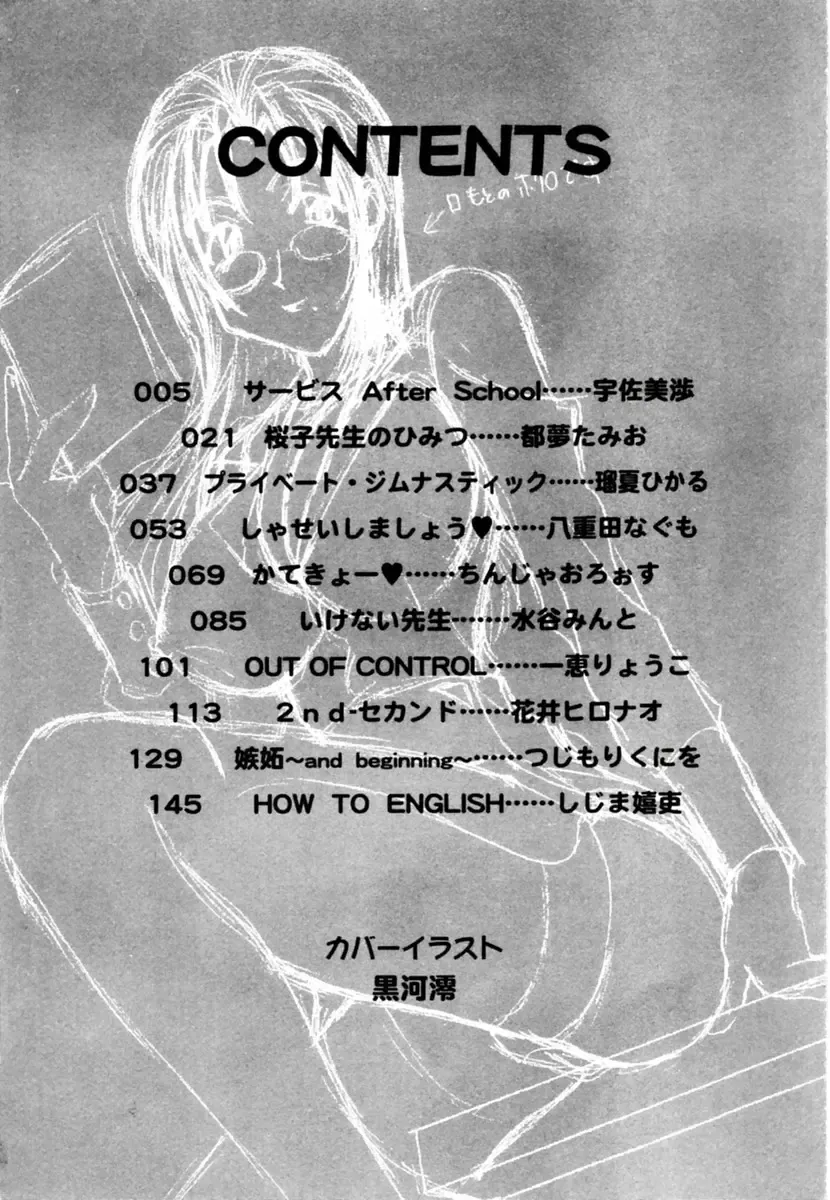 CONTENTS
口もとのホクロ
005 サービス After School……宇佐美渉
021 桜子先生のひみつ……都夢たみお
037 プライベート・ジムナスティック……瑠夏ひかる
053 しゃせいしましょう♥……八重田なぐも
069 かてきょー♥……ちんじゃおろぉす
085 いけない先生……水谷みんと
101 OUT OF CONTROL……一恵りょうこ
113 2nd-セカンド……花井ヒロナオ
129 嫉妬~and beginning~……つじもりくにを
145 HOW TO ENGLISH……しじま嬉吏
カバーイラスト
黒河澪